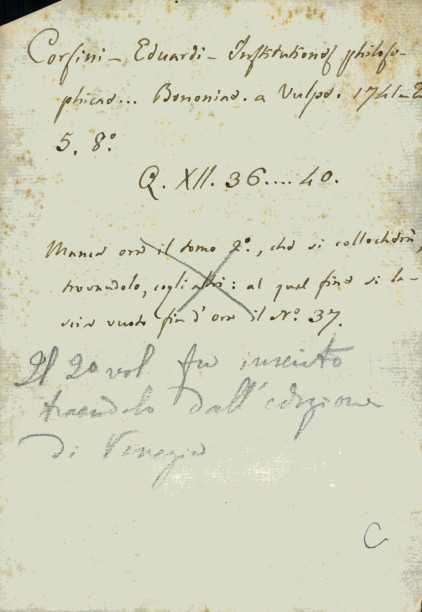 Corsini – Eduardi – Institutiones philoso-
phicae... Bononiae. a Vulpe. 1741–2
5. 8.º
Q. XII. 36.... 40.
Manca ora il tomo 2º., che si collocherà,
trovandolo, cogli altri: al qual fine si la-
scia vuoto fin d'ora il Nº. 37.
Il 2º vol fu inserito
traendolo dall'edizione
di Venezia
C